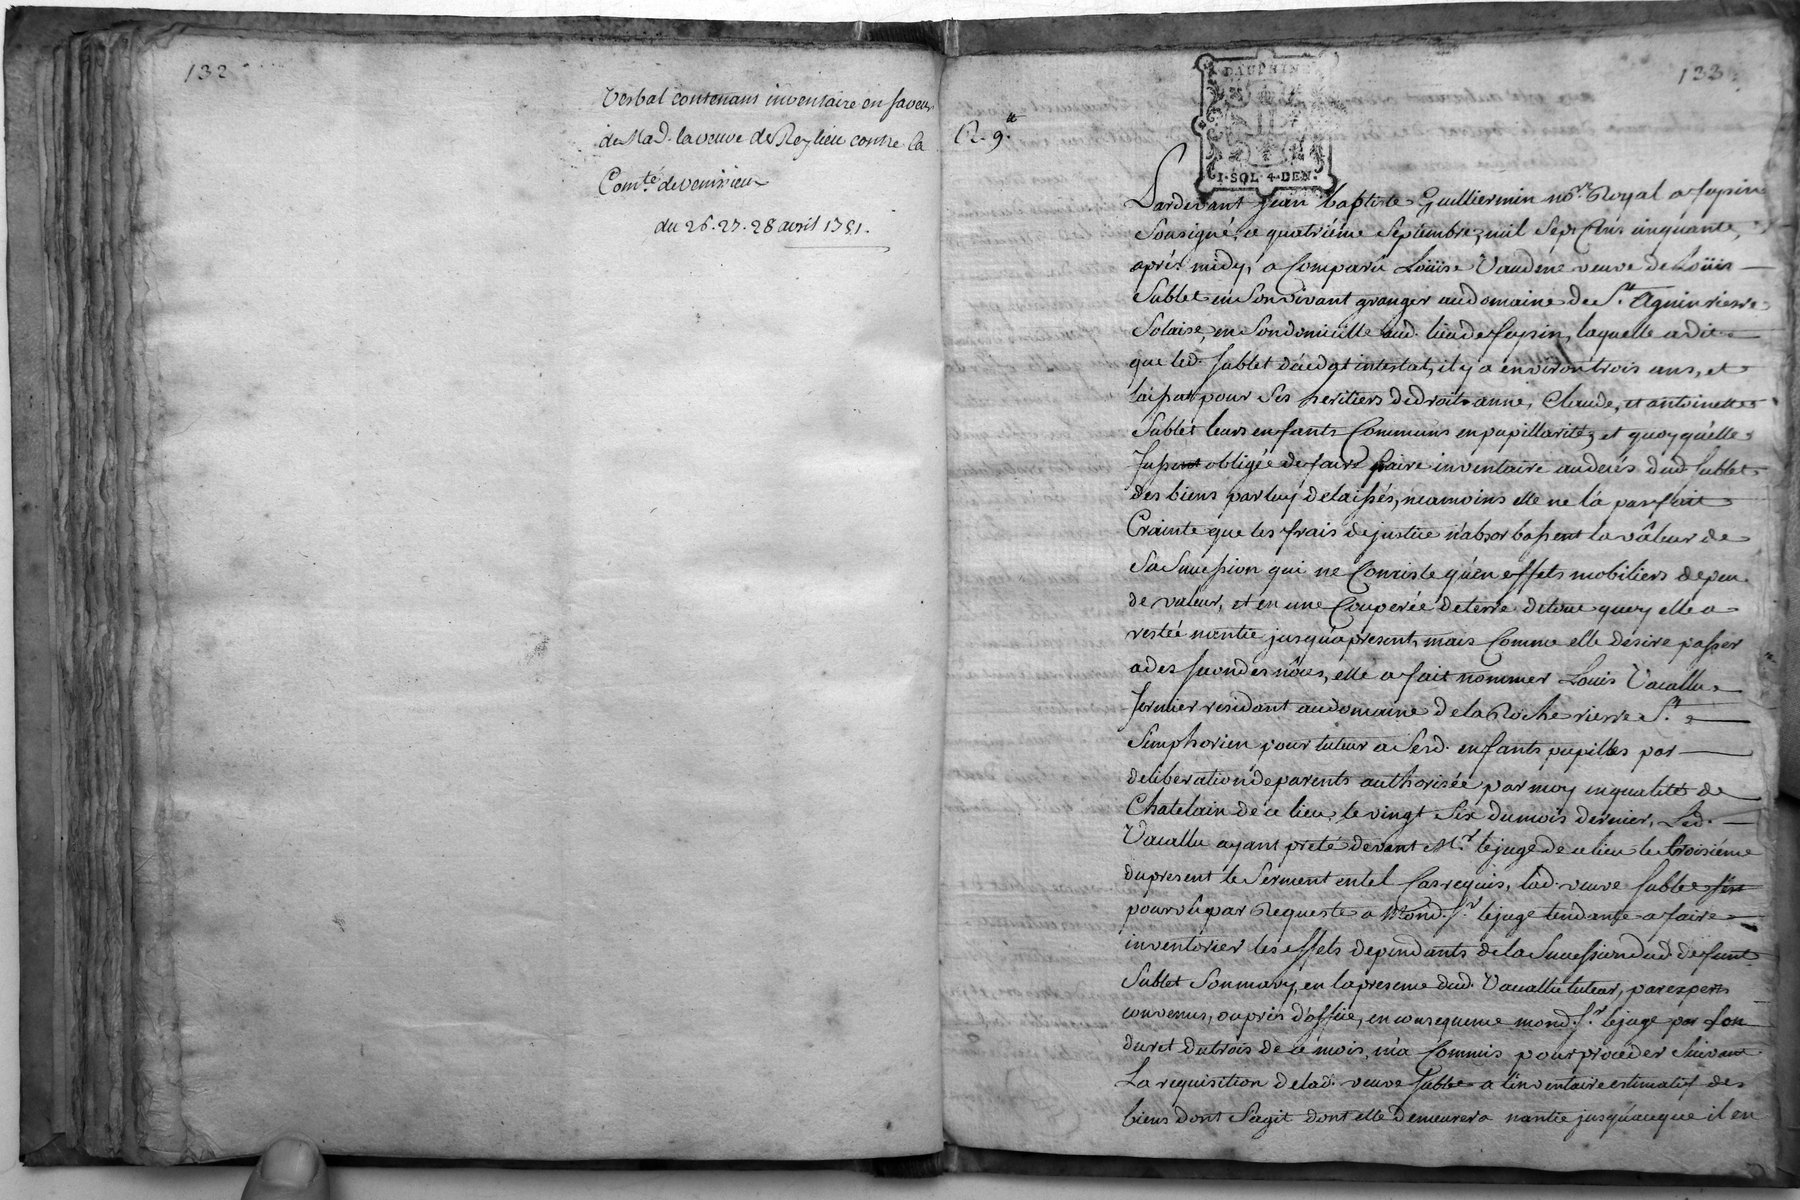 132
Verbal contenant inventaire en faveur
de Mad. la veuve de Reylieu contre la
Com.té de venissieu
du 26. 27. 28 avril 1751.
133
R. 9.tt
DAUPHINE
1·SOL 4·DEN.
Pardevant Jean baptiste Guilliermin no.re Royal a feysin
Sousigné, ce quatriéme Septembre, mil Sept Cens cinquante,
aprés midy, a Comparû Loüise Vaudene veuve de Loüis
Sublet en Son vivant granger au domaine de S.t Agnin riere
Solaise, en Son domicille aud. lieu de feysin, laquelle a dit
que led. Sublet décedat intestat, il y a environ trois ans, et
laissat pour Ses heritiers de droit anne, Claude, et antoinette
Sublet leurs enfants Communs en pupillarité, et quoy qu'elle
fussent obligée de faire faire inventaire au decés dud. Sublet
des biens par luy delaissés, neamoins elle ne l'a pas fait
Crainte que les frais de justice n'absorbassent la vâleur de
Sa Succession qui ne Consiste qu'en effets mobiliers de peu
de valeur, et en une Couperée de terre de tout quoy elle a
restée nantie jusqu'a present, mais Comme elle désire passer
a des secondes nôces, elle a fait nommer Louis Vacallu
fermier residant au domaine de la Roche rierre S.t
Simphorien pour tuteur a Sesd. enfants pupilles par
deliberation de parents authorisée par moy en qualité de
Chatelain de ce lieu, le vingt Six du mois dernier, Led.
Vacallu ayant preté devant M.r le juge de ce lieu le troisiéme
du present le Serment en tel Cas requis, lad. veuve Sublet s'est
pourvüe par Requeste a Mond. S.r le juge tendante a faire
inventorier les effets dependants de la Succession dud. defunt
Sublet Son mary, en la presence dud. Vacallu tuteur, par experts
convenus, ou pris d'office, en consequence mond. S.r le juge par Son
decret du trois de ce mois, m'a Commis pour proceder Suivant
La requisition de lad. veuve Sublet a l'inventaire estimatif des
biens dont S'agit dont elle demeurera nantie jusqu'auque il en